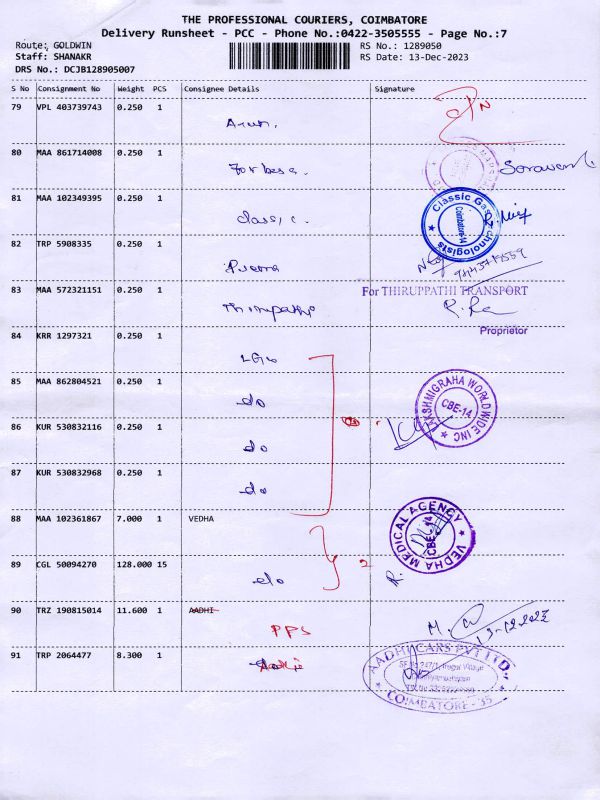 THE PROFESSIONAL COURIERS, COIMBATORE
Delivery Runsheet - PCC - Phone No.:0422-3505555 - Page No.:7
Route: GOLDWIN RS No.: 1289050
Staff: SHANAKR RS Date: 13-Dec-2023
DRS No.: DCJB128905007
S No Consignment No Weight PCS Consignee Details Signature
79 VPL 403739743 0.250 1
Arun.
80 MAA 861714008 0.250 1
Forbes
81 MAA 102349395 0.250 1
Classic
Classic Gas Technologists
Coimbatore
82 TRP 5908335 0.250 1
83 MAA 572321151 0.250 1
For THIRUPPATHI TRANSPORT
Thirupathi
Proprietor
84 KRR 1297321 0.250 1
85 MAA 862804521 0.250 1
do
LAKSHMIGRAHA WORLDWIDE INC
CBE-14
86 KUR 530832116 0.250 1
do
87 KUR 530832968 0.250 1
do
88 MAA 102361867 7.000 1 VEDHA
VEDHA MEDICAL AGENCY
CBE-14
89 CGL 50094270 128.000 15
do
2
90 TRZ 190815014 11.600 1 AADHI
PPS
13-12-2023
91 TRP 2064477 8.300 1
AADHI CARS PVT LTD
COIMBATORE - 35